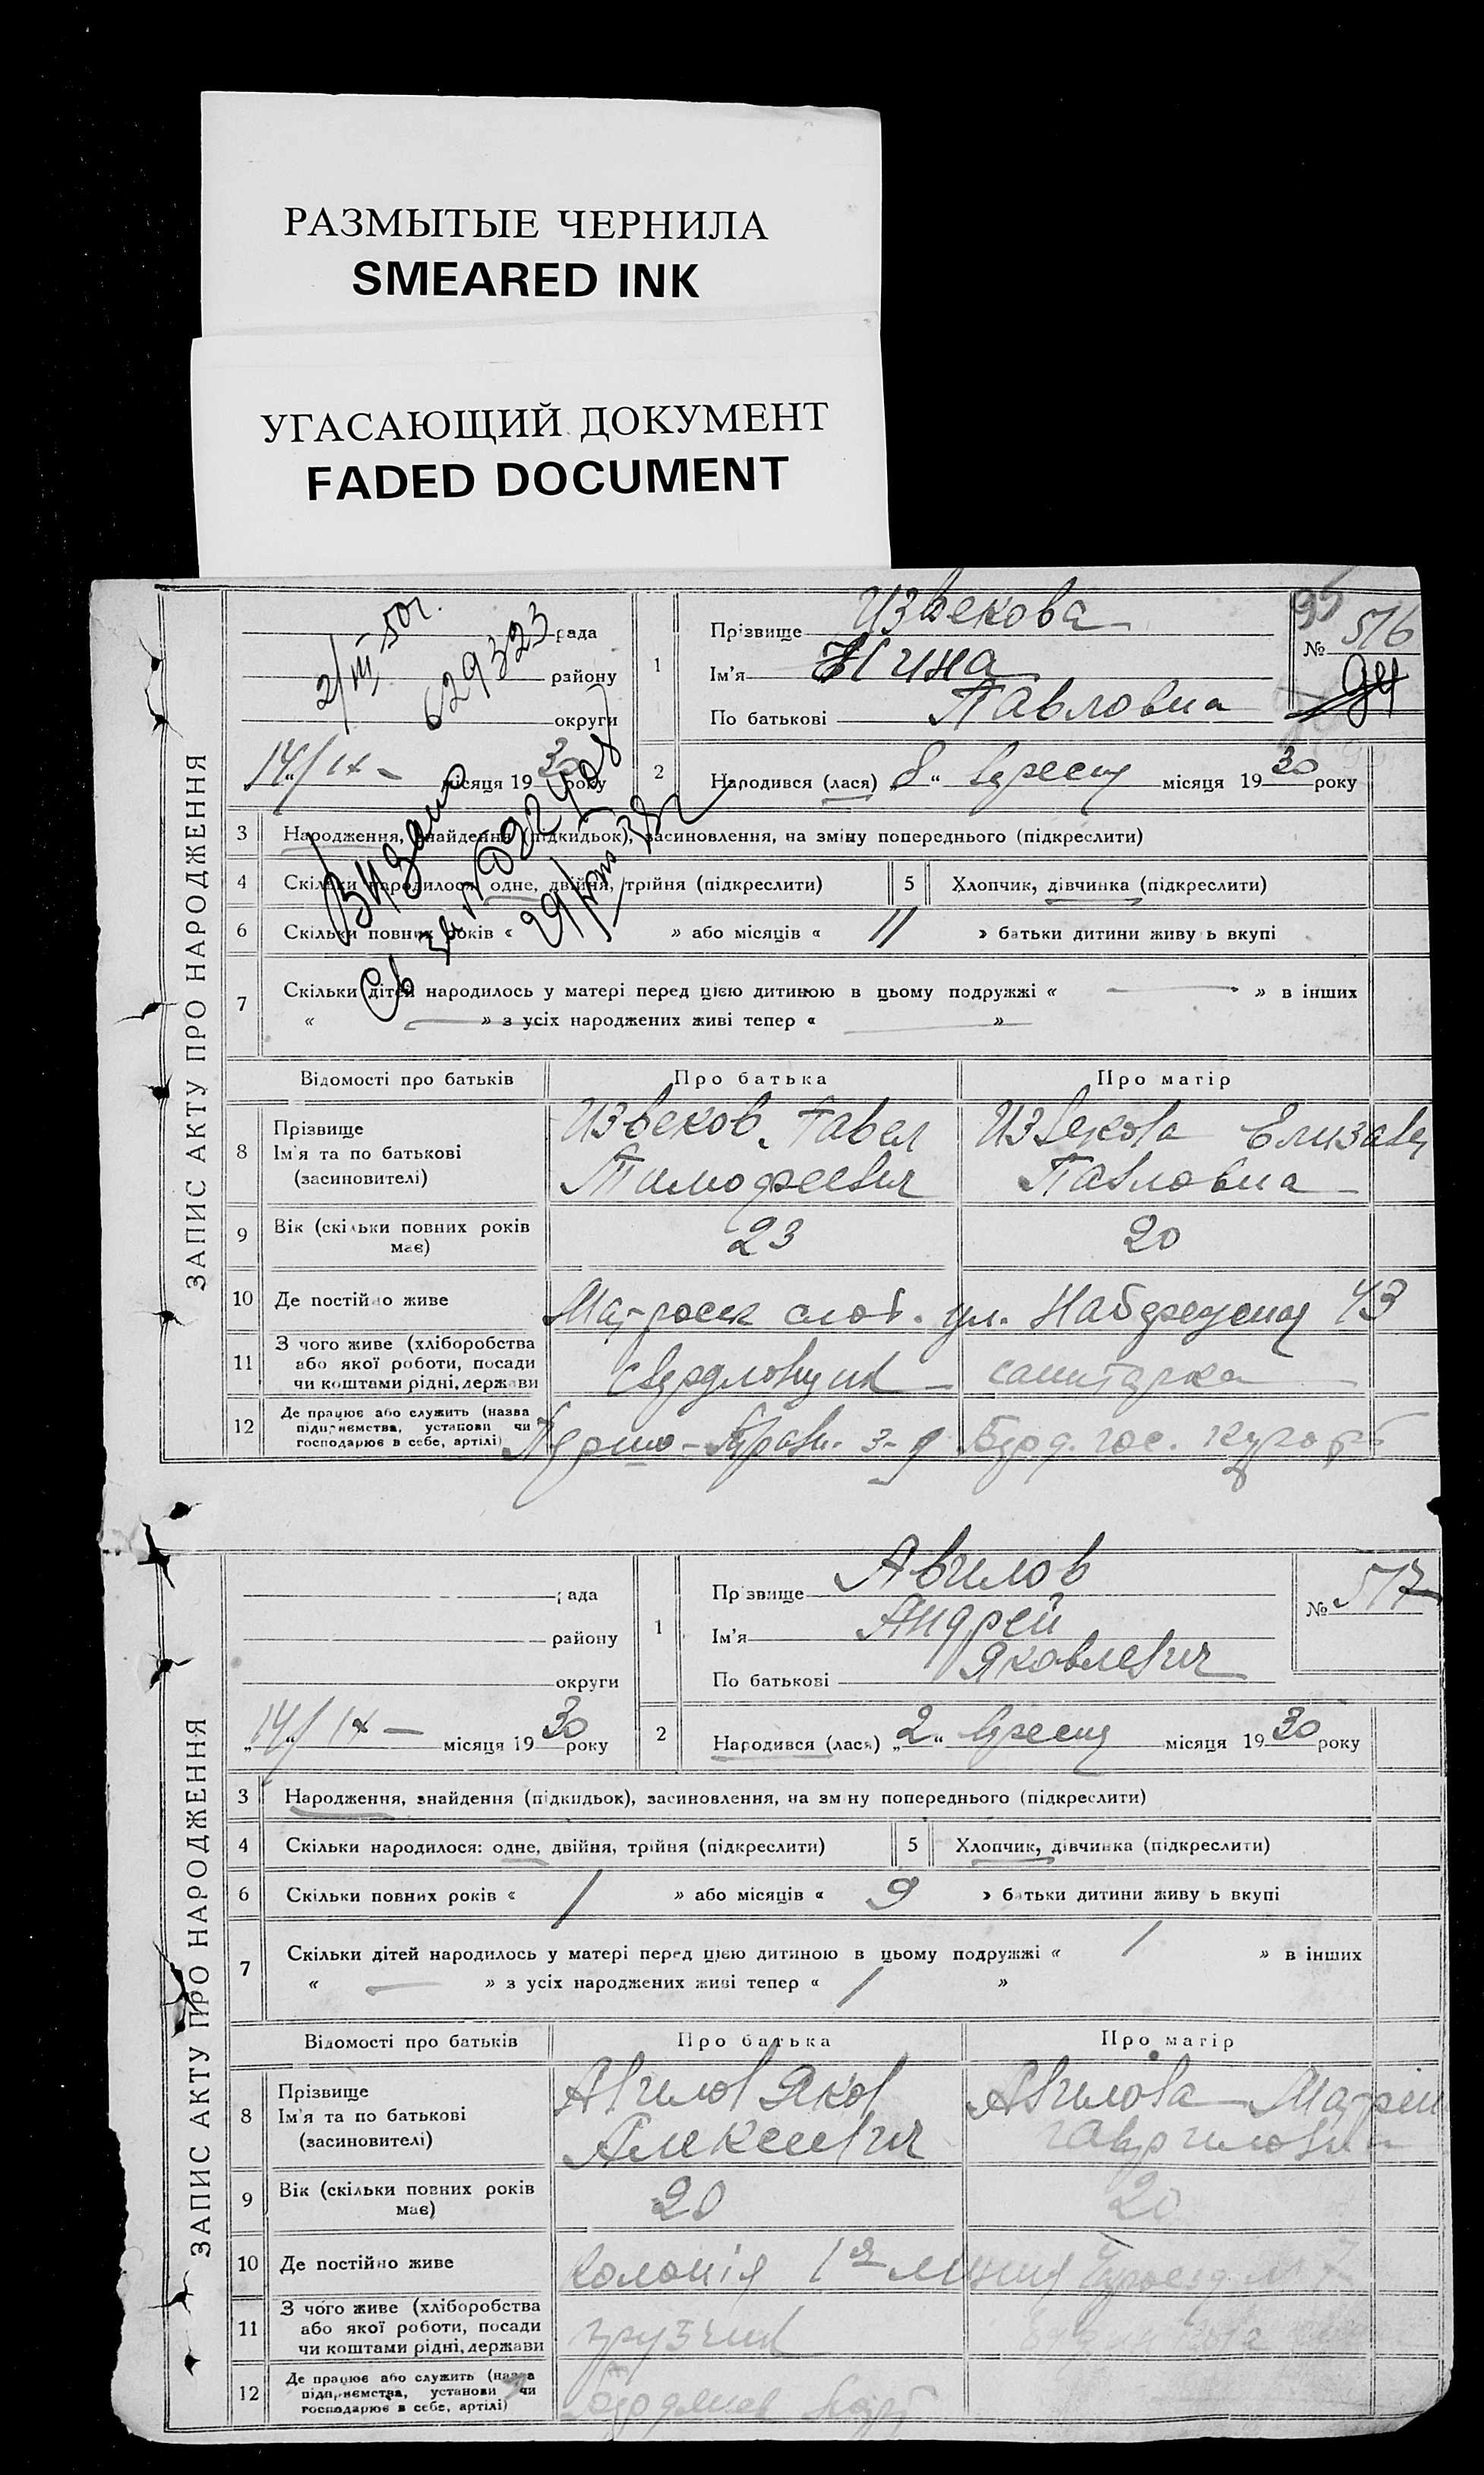 РАЗМЫТЫЕ ЧЕРНИЛА
SMEARED INK
УГАСАЮЩИЙ ДОКУМЕНТ
FADED DOCUMENT
ЗАПИС АКТУ ПРО НАРОДЖЕННЯ
рада
району
округи
2/III 50г.
629323
14/IX- місяця 1930 року
1
Прізвище Извекова
Ім'я Нина
По батькові Павловна
95
№ 516
94
2
Народився (лася) 8 " вересня місяця 1930 року
Видано
3 Народження, знайдення (підкидьок), засиновлення, на зміну попереднього (підкреслити)
4 Скільки народилося: одне, двійня, трійня (підкреслити) 5 Хлопчик, дівчинка (підкреслити)
6 Скільки повних років « » або місяців « 11 » батьки дитини живуть вкупі
7 Скільки дітей народилось у матері перед цією дитиною в цьому подружжі « — » в інших
« — » з усіх народжених живі тепер « — »
Відомості про батьків Про батька Про матір
8 Прізвище
Ім'я та по батькові
(засиновителі)
Извеков Павел
Тимофеевич
Извекова Елизав
Павловна
9 Вік (скільки повних років
має)
23 20
10 Де постійно живе Матросск слоб. ул. Набережная 43
11 З чого живе (хліборобства
або якої роботи, посади
чи коштами рідні, держави
свердловщик санитарка
12 Де працює або служить (назва
підприємства, установи чи
господарює в себе, артілі)
Першо-Травн. з-д Берд. гос. курорт
ЗАПИС АКТУ ПРО НАРОДЖЕННЯ
рада
району
округи
„14"/IX— місяця 1930 року
1
Прізвище Авилов
Ім'я Андрей
По батькові Яковлевич
№ 517
2
Народився (лася) „2" вересня місяця 1930 року
3 Народження, знайдення (підкидьок), засиновлення, на зміну попереднього (підкреслити)
4 Скільки народилося: одне, двійня, трійня (підкреслити) 5 Хлопчик, дівчинка (підкреслити)
6 Скільки повних років « 1 » або місяців « 9 » батьки дитини живуть вкупі
7 Скільки дітей народилось у матері перед цією дитиною в цьому подружжі « 1 » в інших
« — » з усіх народжених живі тепер « 1 »
Відомості про батьків Про батька Про матір
8 Прізвище
Ім'я та по батькові
(засиновителі)
Авилов Яков
Алексеевич
Авилова
Гавриловна
9 Вік (скільки повних років
має)
20 20
10 Де постійно живе Колонія 1я линия
11 З чого живе (хліборобства
або якої роботи, посади
чи коштами рідні, держави
грузчик
12 Де працює або служить (назва
підприємства, установи чи
господарює в себе, артілі)